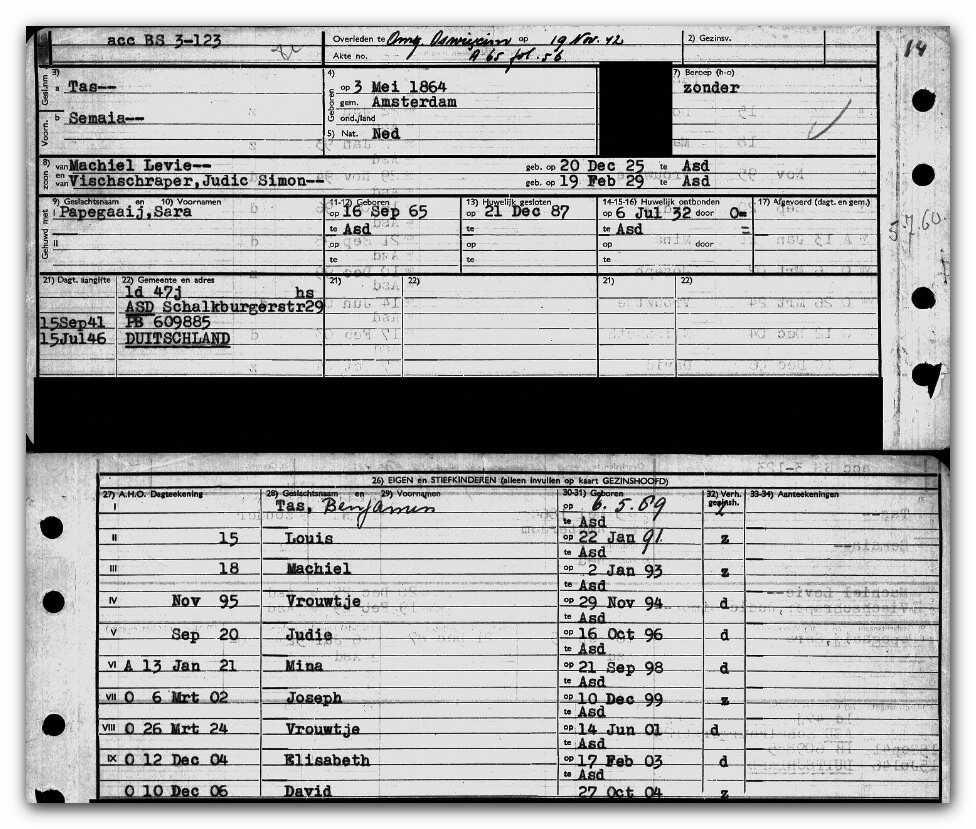 acc BS 3-123
Overleden te Omg. Oswiecim op 19 Nov. 42
Akte no. A 65 fol. 56
2) Gezinsv.
14
Geslachtsn.
3) a Tas--
Voorn.
b Semaia--
4)
Geboren
op 3 Mei 1864
gem. Amsterdam
ond./land
5) Nat. Ned
7) Beroep (h-o)
zonder
8) zoon
van Machiel Levie-- geb. op 20 Dec 25 te Asd
en van Vischschraper,Judic Simon-- geb. op 19 Feb 29 te Asd
Gehuwd met
9) Geslachtsnaam en 10) Voornamen
I Papegaaij,Sara
II
11-12) Geboren
op 16 Sep 65
te Asd
op
te
13) Huwelijk gesloten
op 21 Dec 87
te
op
te
14-15-16) Huwelijk ontbonden
op 6 Jul 32 door O=
te Asd =
op door
te
17) Afgevoerd (dagt. en gem.)
21) Dagt. aangifte 22) Gemeente en adres 21) 22) 21) 22)
ld 47j hs
ASD Schalkburgerstr29
15Sep41 PB 609885
15Jul46 DUITSCHLAND
26) EIGEN en STIEFKINDEREN (alleen invullen op kaart GEZINSHOOFD)
27) A.H.O. Dagteekening 28) Geslachtsnaam en 29) Voornamen 30-31) Geboren 32) Verh. gezinsh. 33-34) Aanteekeningen
I Tas, Benjamin op 6.5.89 z
te Asd
II 15 Louis op 22 Jan 91 z
te Asd
III 18 Machiel op 2 Jan 93 z
te Asd
IV Nov 95 Vrouwtje op 29 Nov 94 d
te Asd
V Sep 20 Judie op 16 Oct 96 d
te Asd
VI A 13 Jan 21 Mina op 21 Sep 98 d
te Asd
VII O 6 Mrt 02 Joseph op 10 Dec 99 z
te Asd
VIII O 26 Mrt 24 Vrouwtje op 14 Jun 01 d
te Asd
IX O 12 Dec 04 Elisabeth op 17 Feb 03 d
te Asd
O 10 Dec 06 David 27 Oct 04 z